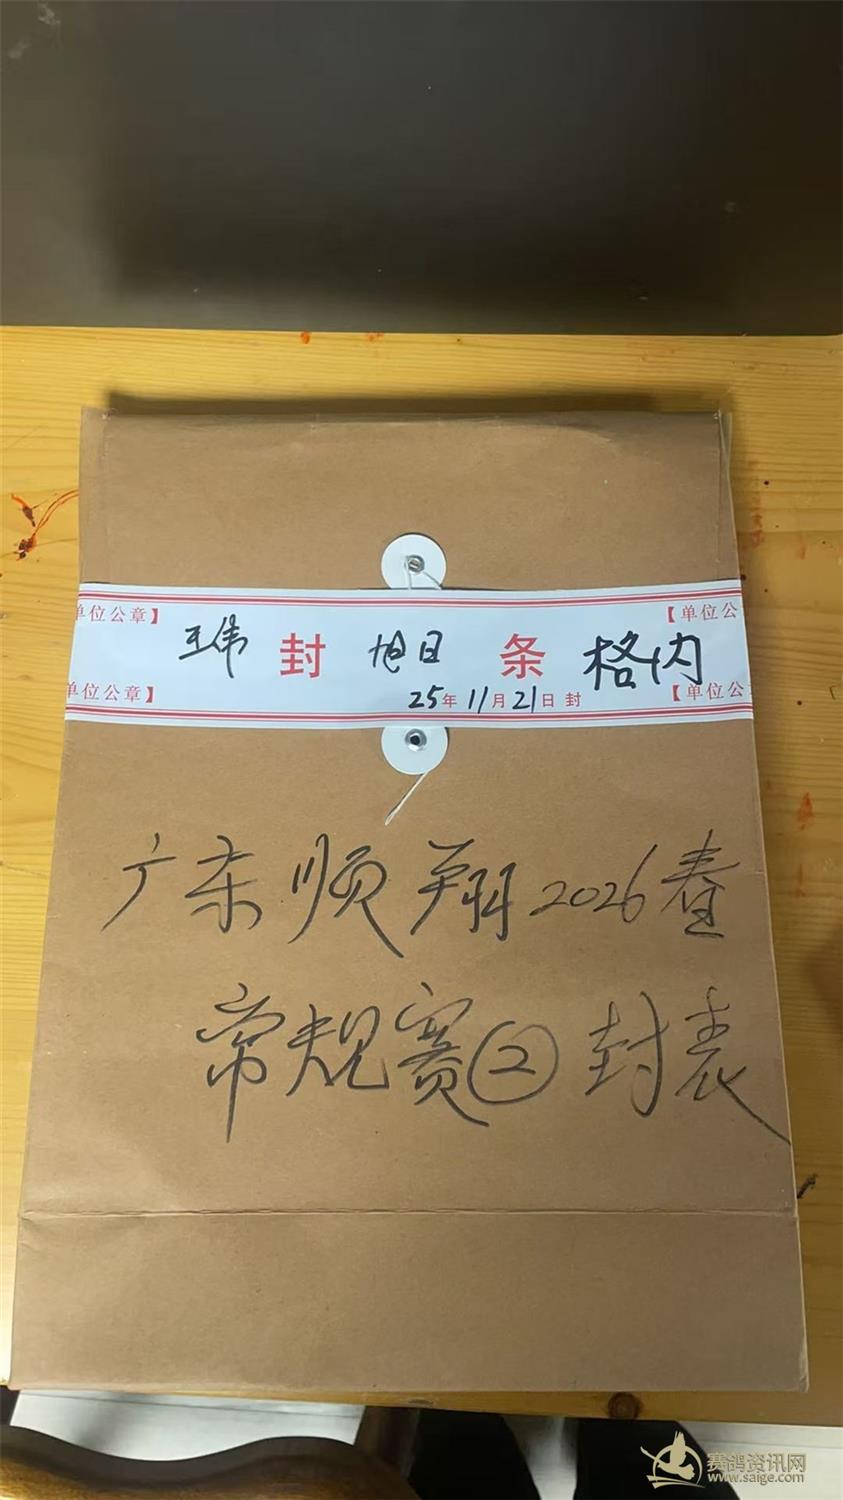 单位公章】 【单位公
王伟 封 旭日 条 格内
单位公章】 25年11月21日封 【单位公
广东顺翔2026春
常规赛②封表
赛鸽资讯网
www.saige.com